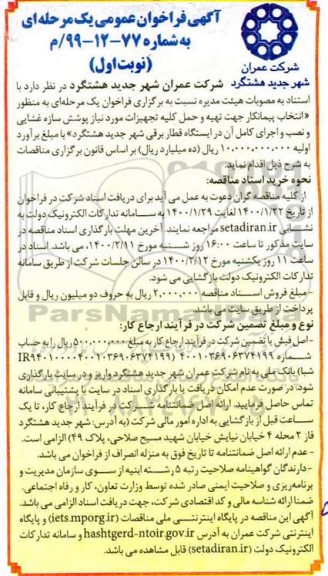 آگهی فراخوان عمومی یک مرحله‌ای
به شماره ۷۷-۱۲-۹۹/م
(نوبت اول)
شرکت عمران
شهر جدید هشتگرد
شرکت عمران شهر جدید هشتگرد در نظر دارد با
استناد به مصوبات هیئت مدیره نسبت به برگزاری فراخوان یک مرحله‌ای به منظور
«انتخاب پیمانکار جهت تهیه و حمل کلیه تجهیزات مورد نیاز پوشش سازه غشایی
و نصب و اجرای کامل آن در ایستگاه قطار برقی شهر جدید هشتگرد» با مبلغ برآورد
اولیه ۱۰,۰۰۰,۰۰۰,۰۰۰ ریال (ده میلیارد ریال) بر اساس قانون برگزاری مناقصات
به شرح ذیل اقدام نماید.
نحوه خرید اسناد مناقصه:
از کلیه مناقصه گران دعوت به عمل می آید برای دریافت اسناد شرکت در فراخوان
از تاریخ ۱۴۰۰/۱/۲۲ لغایت ۱۴۰۰/۱/۲۹ به سامانه تدارکات الکترونیک دولت به
نشانی setadiran.ir مراجعه نمایند. آخرین مهلت بارگذاری اسناد مناقصه در
سایت مذکور تا ساعت ۱۶:۰۰ روز شنبه مورخ ۱۴۰۰/۲/۱۱ می باشد. اسناد در
ساعت ۱۱ روز یکشنبه مورخ ۱۴۰۰/۲/۱۲ در سالن جلسات شرکت از طریق سامانه
تدارکات الکترونیک دولت بازگشایی می شود.
-مبلغ فروش اسناد مناقصه ۲,۰۰۰,۰۰۰ ریال به حروف دو میلیون ریال و قابل
پرداخت از طریق سایت می باشد.
نوع و مبلغ تضمین شرکت در فرآیند ارجاع کار:
-اصل فیش یا تضمین شرکت در فرآیند ارجاع کار به مبلغ ۵۰۰,۰۰۰,۰۰۰ ریال را به حساب
شماره ۴۰۰۱۰۳۶۹۰۶۳۷۴۱۹۹
شبا) بانک ملی به نام شرکت عمران شهر جدید هشتگرد واریز و در سایت بارگذاری
شود. در صورت عدم امکان دریافت یا بارگذاری اسناد در سایت با پشتیبانی سامانه
تماس حاصل فرمایید. ارائه اصل ضمانتنامه شرکت در فرآیند ارجاع کار، تا یک
ساعت قبل از بازگشایی به اداره امور مالی شرکت (به آدرس: شهر جدید هشتگرد
فاز ۲ محله ۴ خیابان نیایش خیابان شهید مسیح صلاحی، پلاک ۴۹) الزامی است.
-عدم ارائه اصل ضمانتنامه تا تاریخ فوق به منزله انصراف از فراخوان می باشد.
-دارندگان گواهینامه صلاحیت رتبه ۵ رشته ابنیه از سوی سازمان مدیریت و
برنامه‌ریزی و صلاحیت ایمنی صادر شده توسط وزارت تعاون، کار و رفاه اجتماعی.
ضمنا ارائه شناسه ملی و کد اقتصادی شرکت، جهت دریافت اسناد الزامی می باشد.
آگهی این مناقصه در پایگاه اینترنتی ملی مناقصات (iets.mporg.ir) و پایگاه
اینترنتی شرکت عمران به آدرس hashtgerd-ntoir.gov.ir و سامانه تدارکات
الکترونیک دولت (setadiran.ir) قابل مشاهده می باشد.